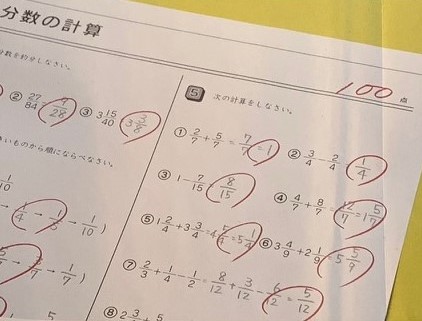 分数の計算
100 点
分数を約分しなさい。
② 27/84 9/28 ③ 3 15/40 3 3/8
きいものから順にならべなさい。
1/10
1/4 → 1/5 → 1/10 )
→ 1/7 )
5 次の計算をしなさい。
① 2/7 + 5/7 = 7/7 = 1
② 3/4 - 2/4 1/4
③ 1 - 7/15 8/15
④ 4/7 + 8/7 = 12/7 = 1 5/7
⑤ 1 2/4 + 3 3/4 = 4 5/4 = 5 1/4
⑥ 3 4/9 + 2 1/9 = 5 5/9
⑦ 2/3 + 1/4 - 1/2 = 8/12 + 3/12 - 6/12 = 5/12
⑧